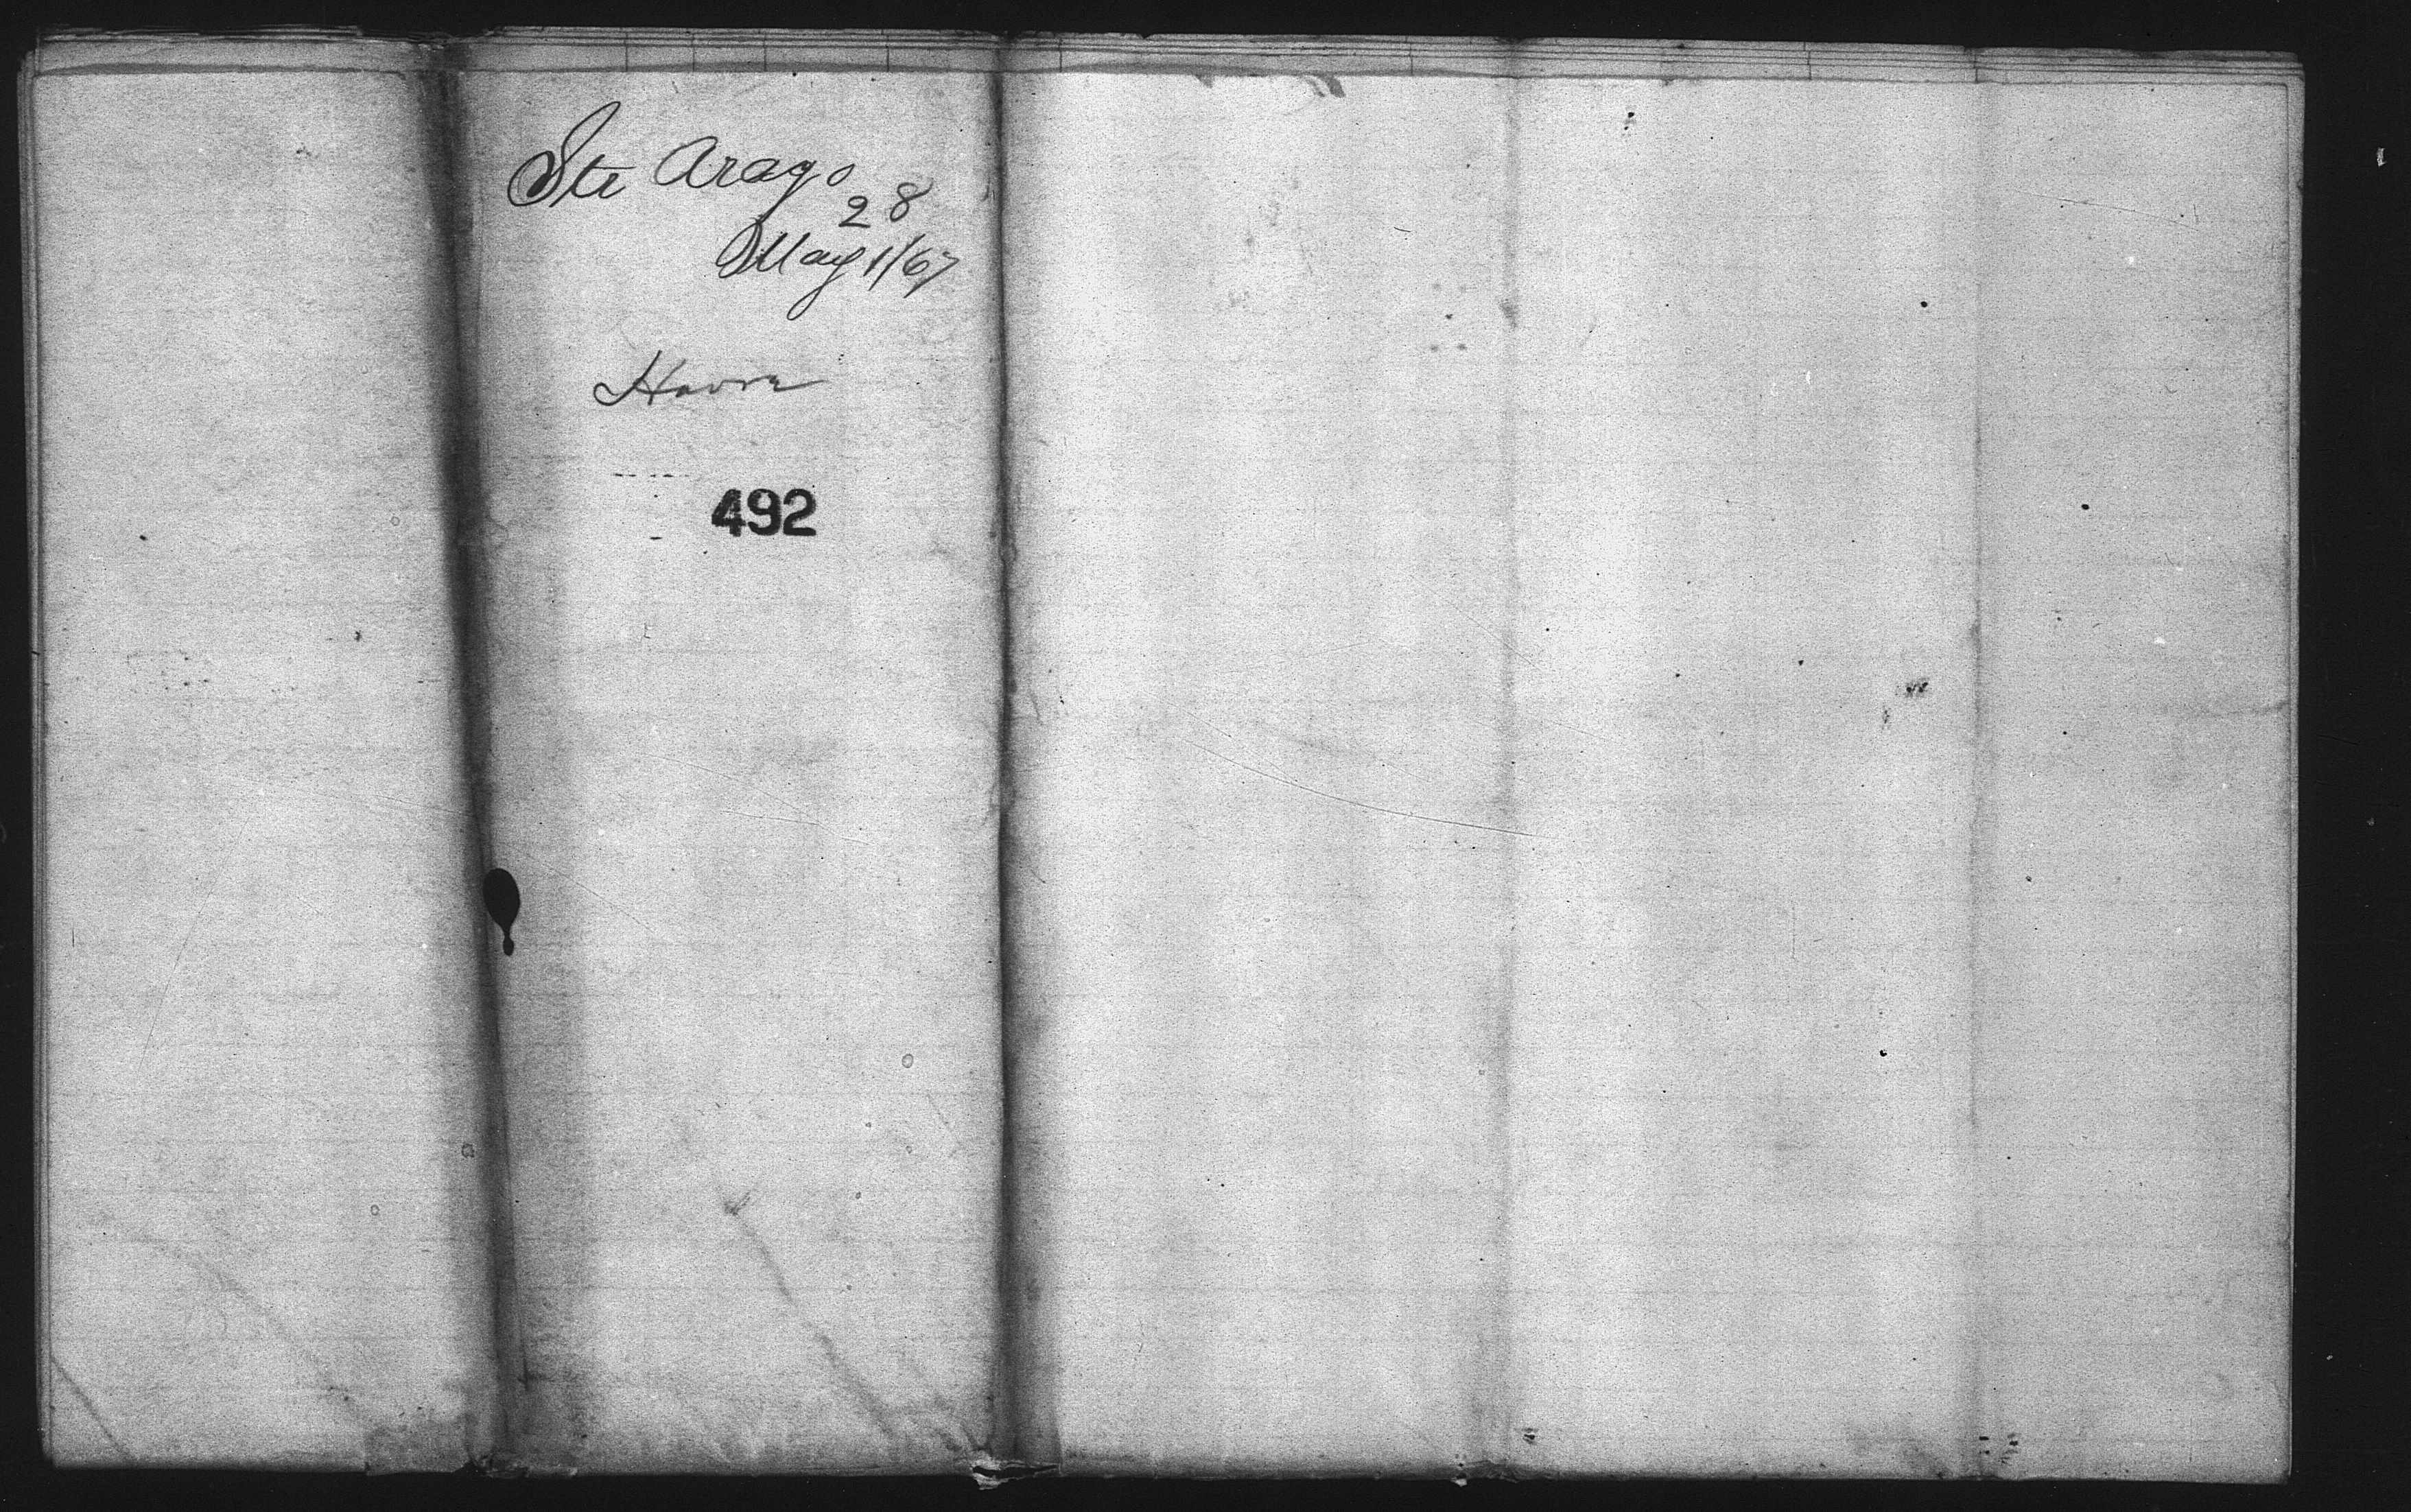 Str Arago
28
May 1/67
Havre
492